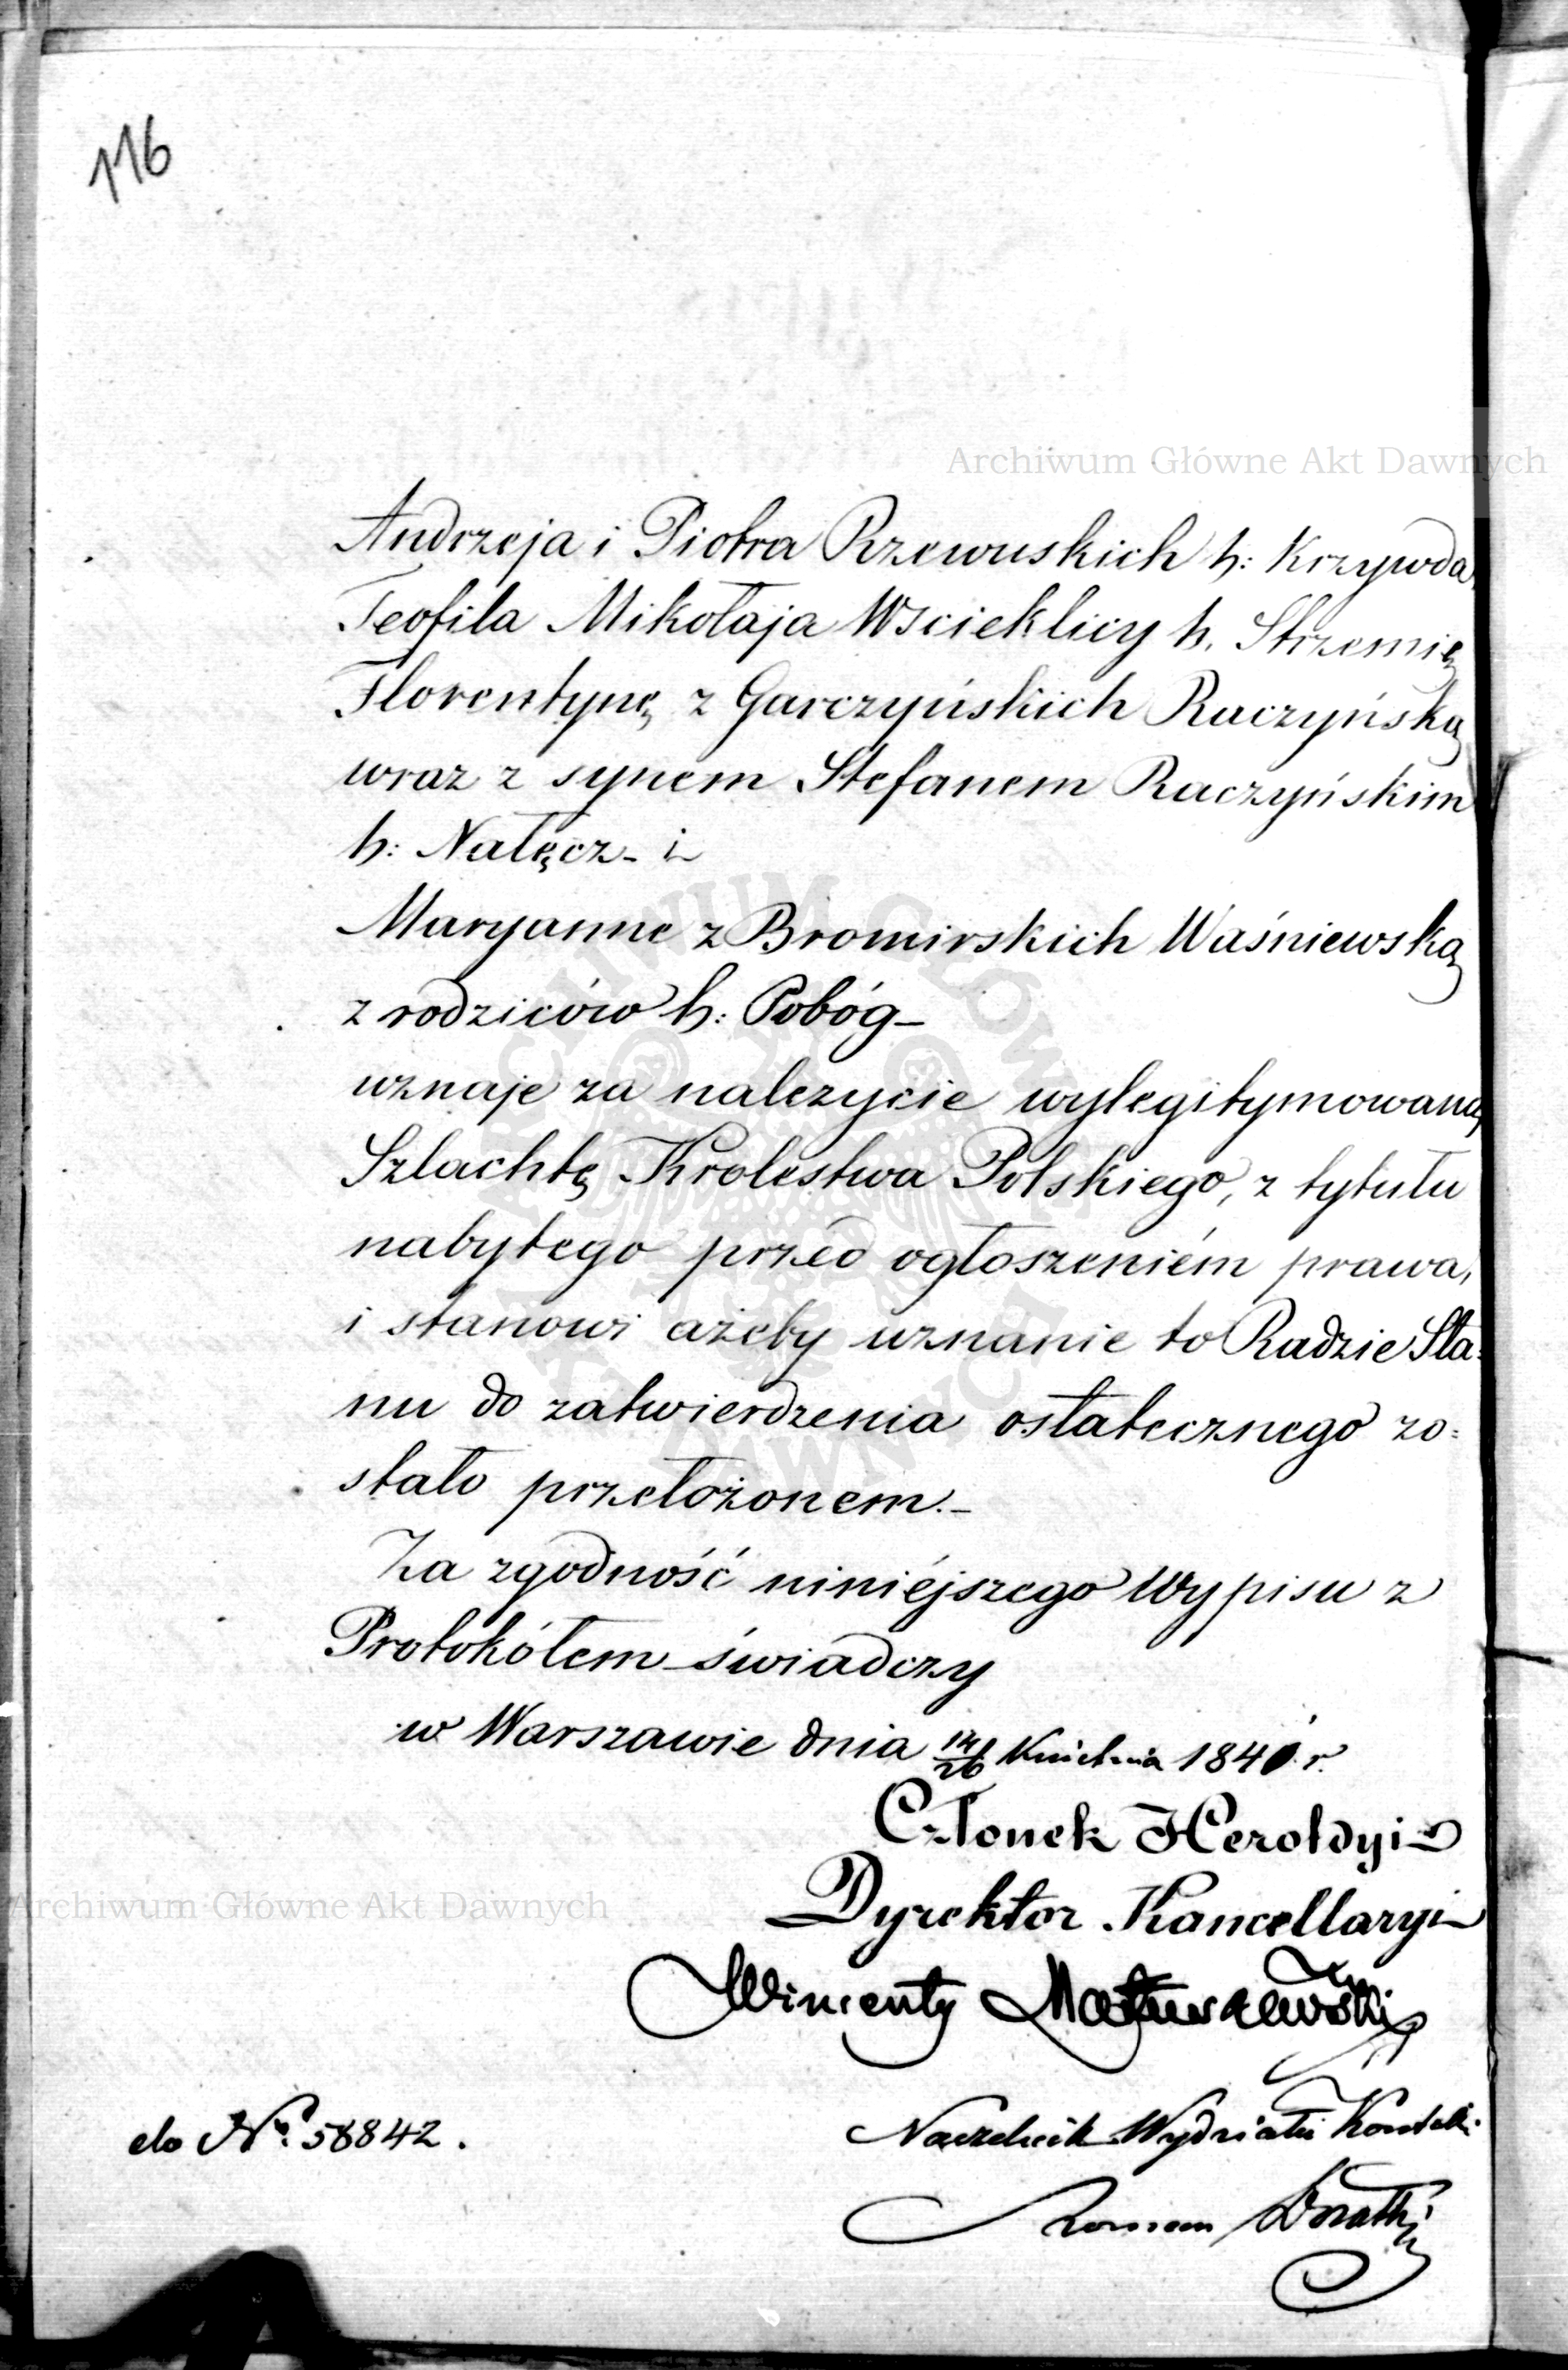 116
Archiwum Główne Akt Dawnych
Andrzeja i Piotra Rzewuskich h: Krzywda,
Teofila Mikołaja Wścieklicy h. Strzemię
Florentynę z Garczyńskich Raczyńską
wraz z synem Stefanem Raczyńskim
h: Nałęcz - i
Maryanne z Bromirskich Waśniewską
z rodziców h: Pobóg -
uznaje za należycie wylegitymowaną
Szlachtę Krolestwa Polskiego, z tytułu
nabytego przed ogłoszeniém prawa,
i stanowi ażeby uznanie to Radzie Sta=
nu do zatwierdzenia ostatecznego zo=
stało przełożonem. -
Za zgodność niniéjszego Wypisu z
Protokółem świadczy
w Warszawie dnia 14/26 Kwietnia 1840 r.
Członek Heroldyi
Dyrektor Kancellaryi
Archiwum Główne Akt Dawnych
Wincenty Matuszewski
do No. 58842.
Naczelnik Wydziału
Roman